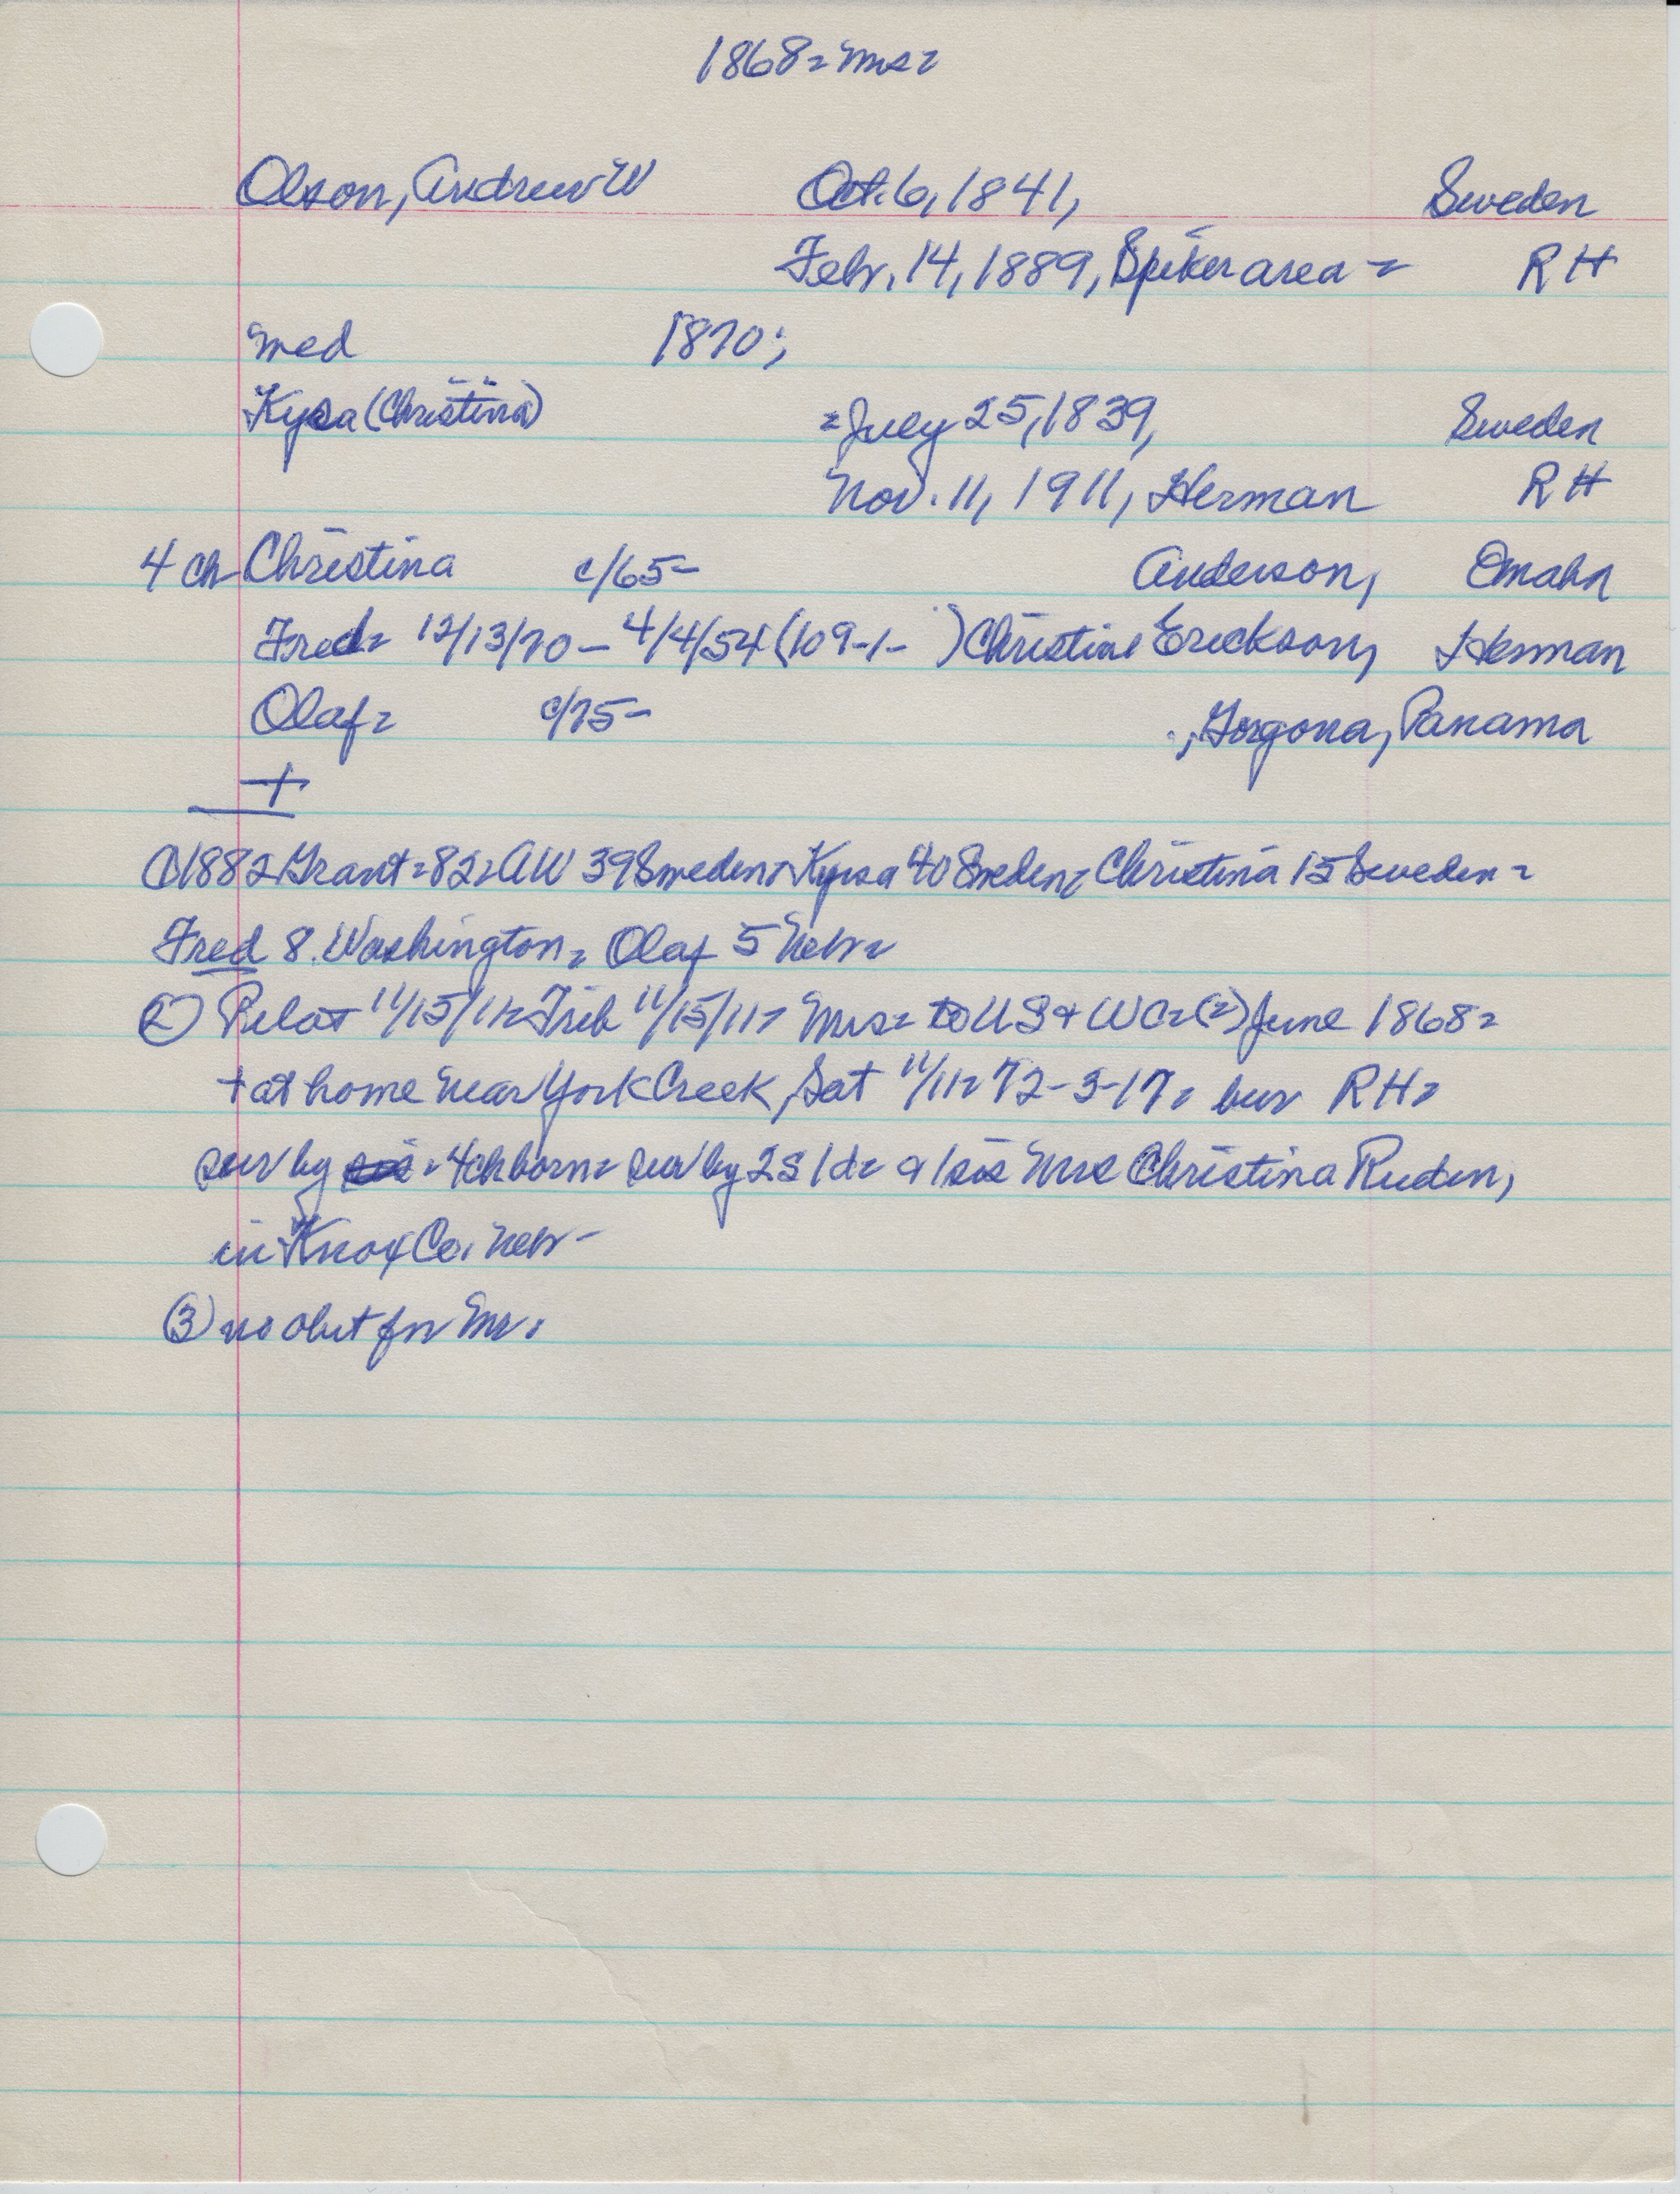 1868 = Mrs =
Olson, Andrew W Oct. 6, 1841, Sweden
Febr. 14, 1889, Spiker area = RH
med 1870;
Kysa (Christina) = July 25, 1839, Sweden
Nov. 11, 1911, Herman RH
4 ch Christina c/65- Anderson, Omaha
Fred = 12/13/70 - 4/4/54 (109-1- ) Christine Erickson, Herman
Olaf = c/75- , Gorgona, Panama
+
① 1882 Grant = 82 = AW 39 Sweden = Kysa 40 Sweden = Christina 15 Sweden =
Fred 8. Washington = Olaf 5 Nebr =
② Pilot 11/15/11 = Trib 11/15/11 = Mrs = to US + WC = (2) June 1868 =
+ at home near York Creek, Sat 11/11 = 72-3-17 = bur RH =
sur by = 4 ch born = sur by 2 s 1 d = & 1 sis Mrs Christina Ruden,
in Knox Co. Nebr -
③ no obit for Mr.